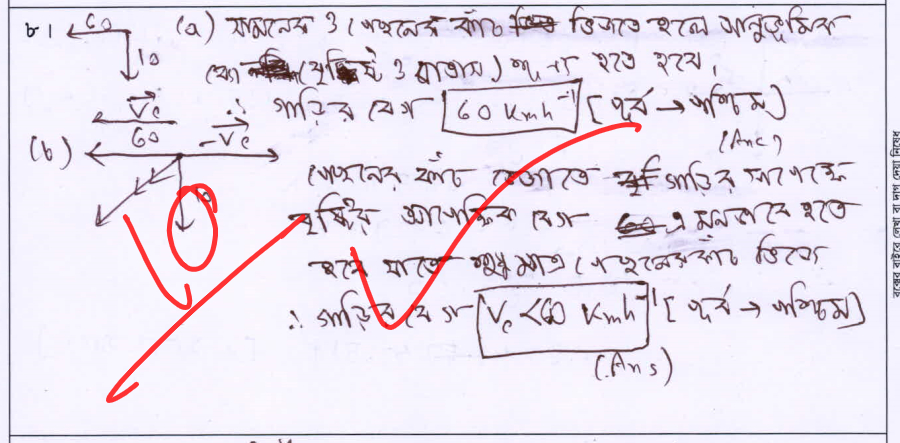 ৮। 60 (a) সামনের ও পেছনের কাঁচ ভিজতে হলে আনুভূমিক
10 বেগ (বৃষ্টি ও বাতাস) শূন্য হতে হবে।
∴ গাড়ির বেগ 60 Kmh⁻¹ [পূর্ব → পশ্চিম]
(Ans)
V_c 60 -V_c
(b) পেছনের কাঁচ ভেজাতে গাড়ির সাপেক্ষে
বৃষ্টির আপেক্ষিক বেগ এমনভাবে হতে
হবে যাতে শুধুমাত্র পেছনের কাঁচ ভিজে
∴ গাড়ির বেগ V_c < 60 Kmh⁻¹ [পূর্ব → পশ্চিম]
(Ans)
বক্সের বাইরে লেখা বা দাগ দেয়া নিষেধ